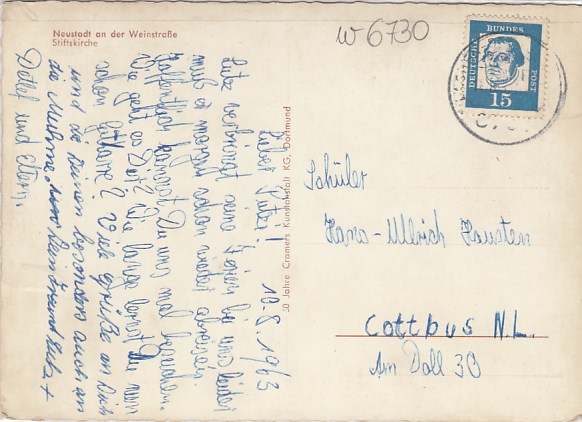 Neustadt an der Weinstraße
Stiftskirche
W 6730
DEUTSCHE BUNDESPOST
15
50 Jahre Cramers Kunstanstalt KG, Dortmund
10.8.1963
Lieber Peter!
Lutz verbringt seine Ferien bei uns leider
muß er morgen schon wieder abreisen.
Hoffentlich kannst Du uns mal besuchen.
Wie geht es Dir? Wie lange lernst Du nun
schon Gitarre? Viele Grüße an Dich
und die Deinen besonders auch an
die Mutter von Deinem Freund Lutz +
Detlef und Eltern.
Schüler
Hans-Ullrich Hausten
Cottbus N.L.
Am Doll 30